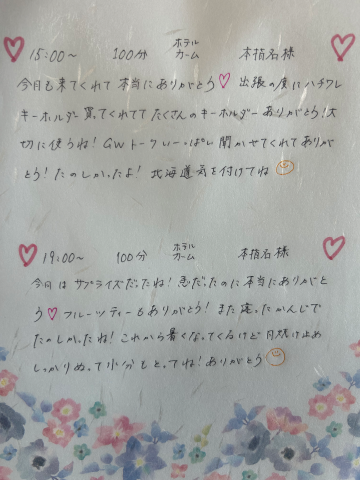 15:00～ 100分 ホテルカーム 本指名様
今日も来てくれて本当にありがとう♡ 出張の度にハチワレ
キーホルダー買ってくれてたくさんのキーホルダーありがとう!大
切に使うね! GWトークいーっぱい聞かせてくれてありが
とう! たのしかったよ! 北海道気を付けてね
19:00～ 100分 ホテルカーム 本指名様
今日はサプライズだったね! 急だったのに本当にありがと
う♡ フルーツティーもありがとう! また違ったかんじで
たのしかったね! これから暑くなってくるけど日焼け止め
しっかりぬって水分もとってね! ありがとう